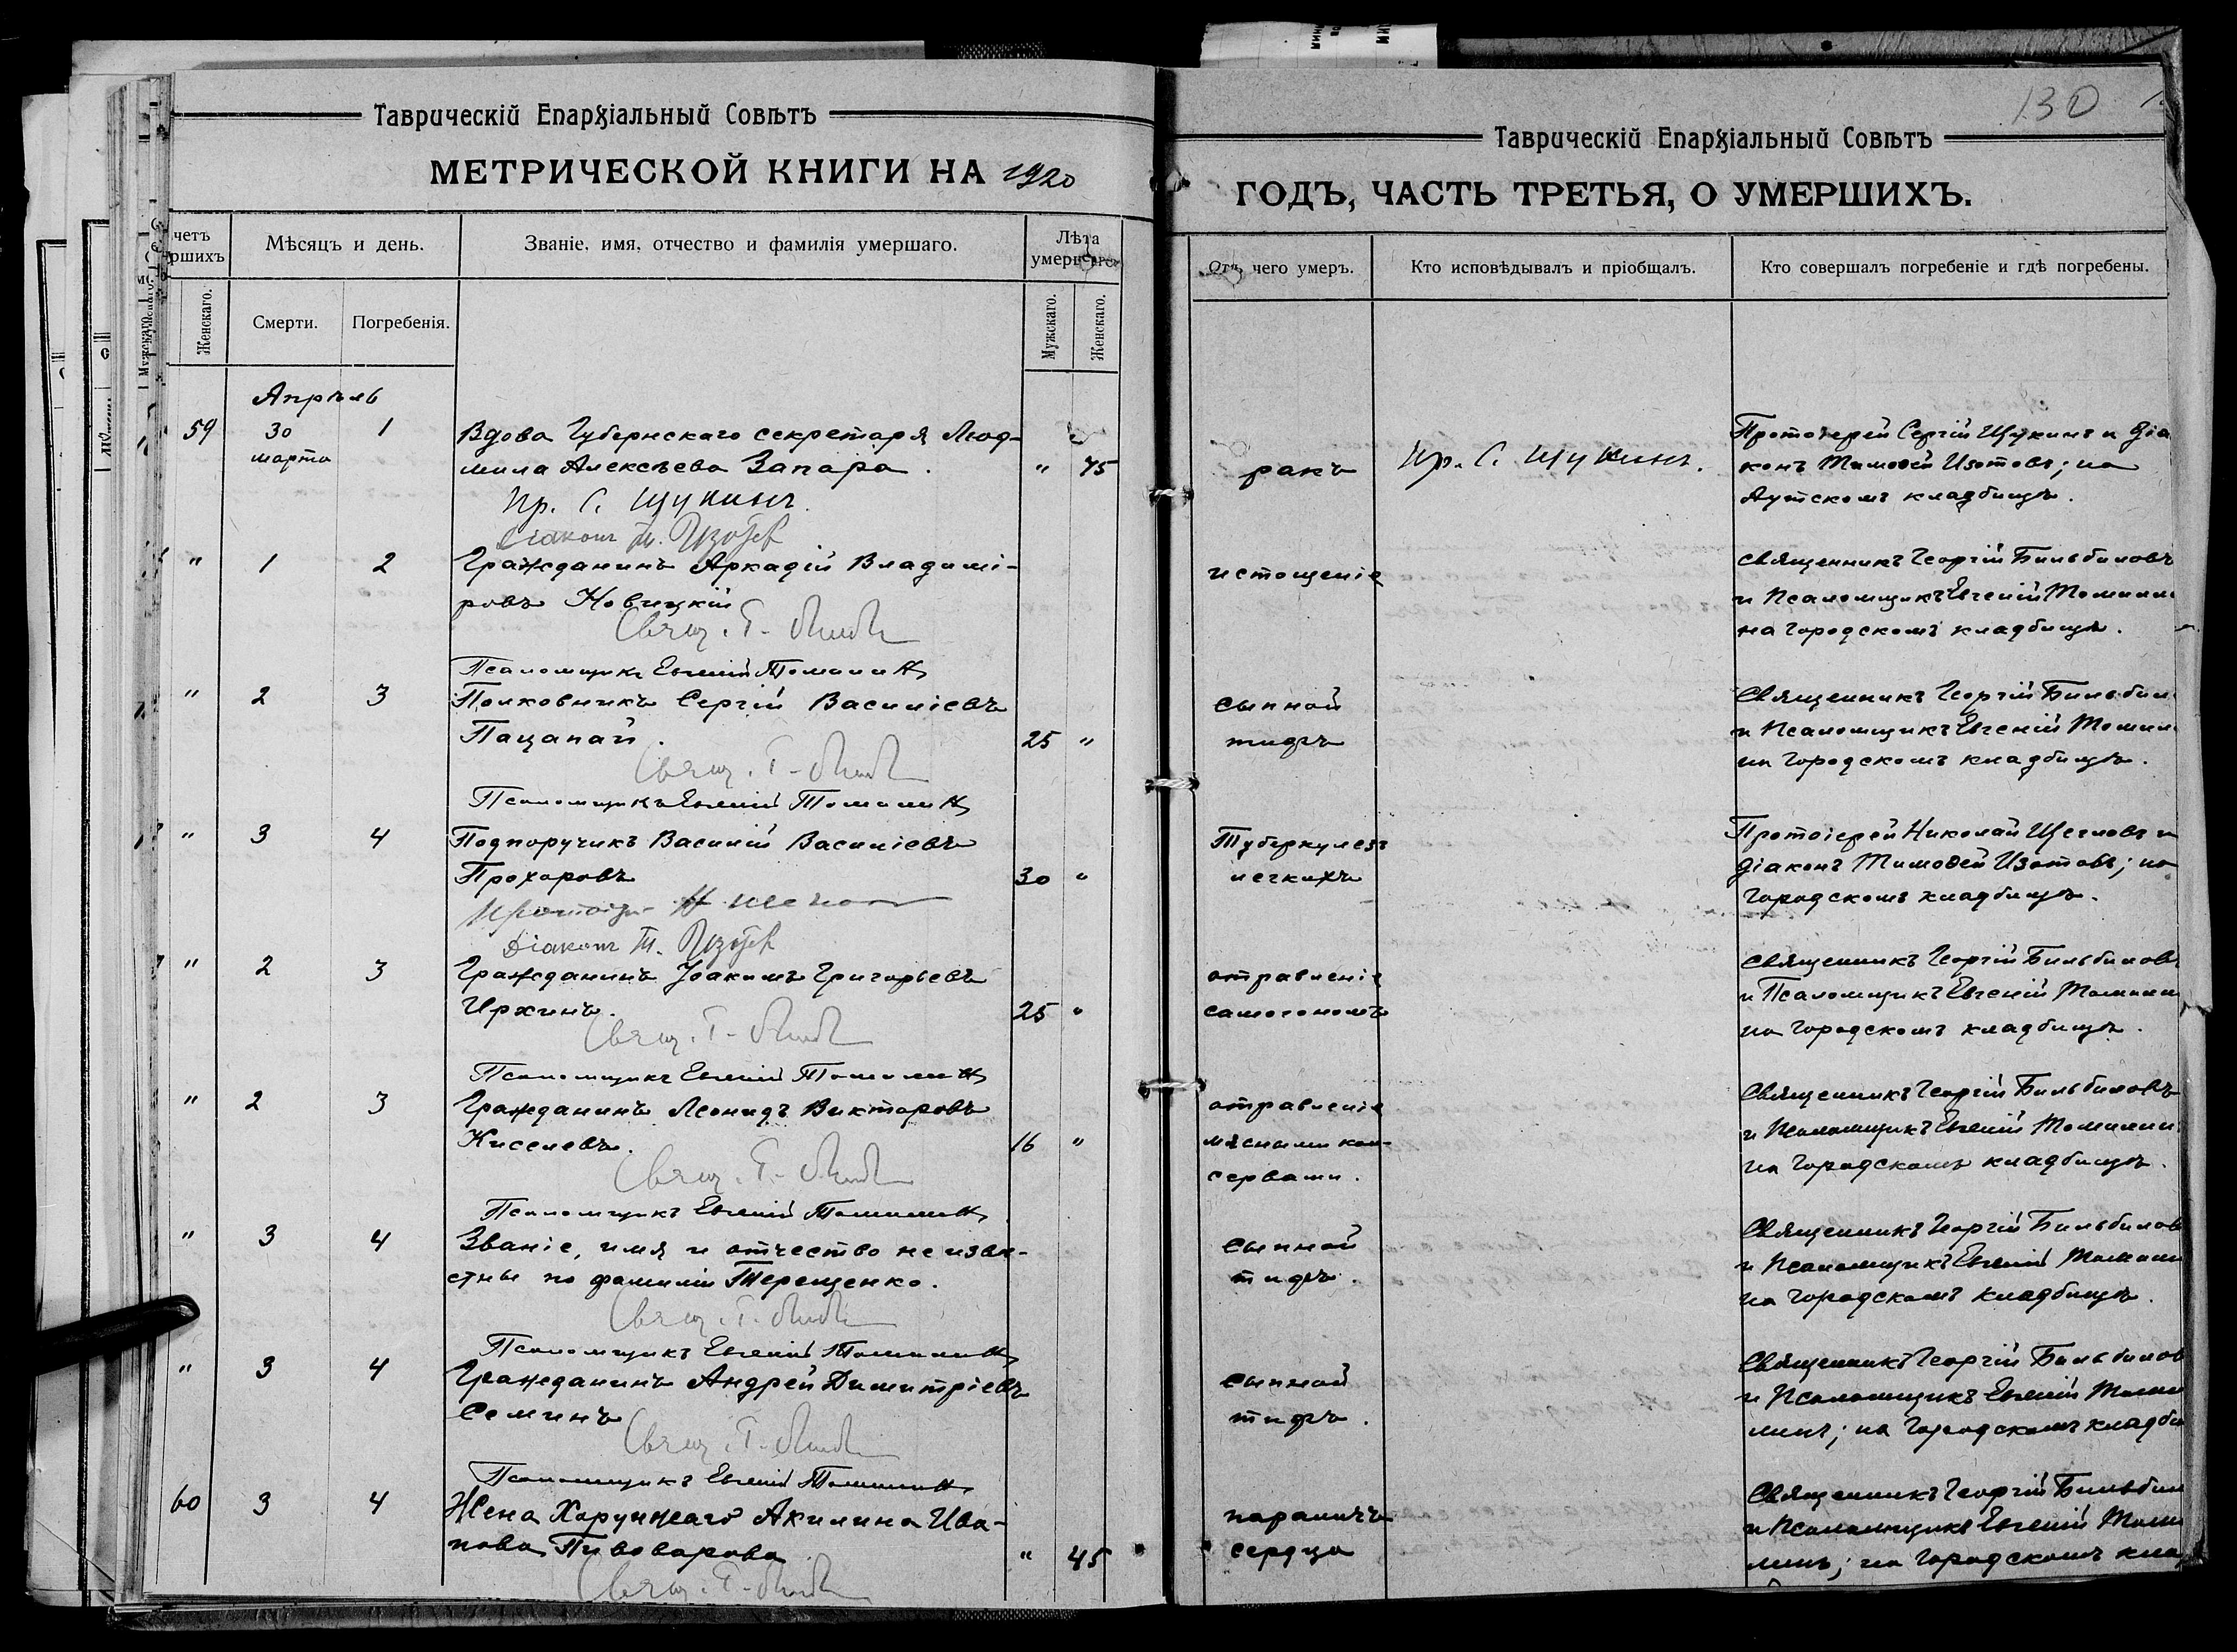 130
Таврическій Епархіальный Совѣтъ
МЕТРИЧЕСКОЙ КНИГИ НА 1920
четъ
ршихъ
Мѣсяцъ и день.
Званіе, имя, отчество и фамилія умершаго.
Лѣта
умершаго
Женскаго.
Смерти.
Погребенія.
Мужскаго.
Женскаго.
Апрѣль
59 30 1 Вдова Губернскаго секретаря Люд-
марта мила Алексѣева Запара. " 75
Пр. С. Щукинъ.
Діаконъ Т. Изотов
" 1 2 Гражданинъ Аркадій Владимі-
ровъ Новицкій
Свящ. Г.
Псаломщикъ Евгеній Томилин
" 2 3 Полковникъ Сергій Василіевъ
Пацапай. 25 "
Свящ. Г.
Псаломщикъ Евгеній Томилин
" 3 4 Подпоручикъ Василій Василіевъ
Прохоровъ 30 "
Діаконъ Т. Изотов
" 2 3 Гражданинъ Іоакимъ Григорьевъ
Иркинъ. 25 "
Свящ. Г.
Псаломщикъ Евгеній Томилин
" 2 3 Гражданинъ Леонидъ Викторовъ
Киселевъ. 16 "
Свящ. Г.
Псаломщикъ Евгеній Томилин
" 3 4 Званіе, имя и отчество не извѣ-
стны по фамиліи Терещенко.
Свящ. Г.
Псаломщикъ Евгеній Томилин
" 3 4 Гражданинъ Андрей Димитріевъ
Семинъ
Свящ. Г.
Псаломщикъ Евгеній Томилин
60 3 4 Жена Хорунжаго Акилина Ива-
нова Пивоварова " 45
Свящ. Г.
Таврическій Епархіальный Совѣтъ
ГОДЪ, ЧАСТЬ ТРЕТЬЯ, О УМЕРШИХЪ.
Отъ чего умеръ.
Кто исповѣдывалъ и пріобщалъ.
Кто совершалъ погребеніе и гдѣ погребены.
ракъ
Пр. С. Щукинъ.
Протоіерей Сергій Щукинъ и діа
конъ Тимоѳей Изотовъ; на
Аутскомъ кладбищѣ.
истощеніе
Священникъ Георгій Бильбиловъ
и Псаломщикъ Евгеній Томилин
на городскомъ кладбищѣ.
сыпной
тифъ
Священникъ Георгій Бильбил
и Псаломщикъ Евгеній Томил
на городскомъ кладбищѣ.
Туберкулезъ
легкихъ
Протоіерей Николай Щегловъ и
діаконъ Тимоѳей Изотовъ; на
городскомъ кладбищѣ.
отравленіе
самогономъ
Священникъ Георгій Бильбиловъ
и Псаломщикъ Евгеній Томилин
на городскомъ кладбищѣ.
отравленіе
мясными кон-
сервами.
Священникъ Георгій Бильбиловъ
и Псаломщикъ Евгеній Томилин
на городскомъ кладбищѣ.
сыпной
тифъ.
Священникъ Георгій Бильбилов
и Псаломщикъ Евгеній Томили
на городскомъ кладбищѣ.
сыпной
тифъ.
Священникъ Георгій Бильбилов
и Псаломщикъ Евгеній Томи
линъ; на городскомъ кладби
параличъ
сердца
Священникъ Георгій Бильбил
и Псаломщикъ Евгеній Томи
линъ; на городскомъ кла